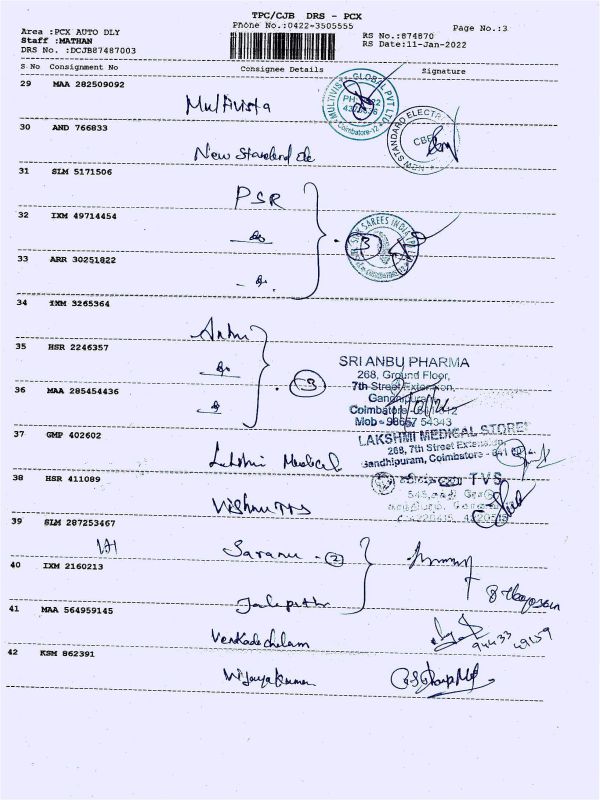 TPC/CJB DRS - PCX
Phone No.:0422-3505555
Page No.:3
Area :PCX AUTO DLY
Staff :MATHAN
DRS No. :DCJB87487003
RS No.:874870
RS Date:11-Jan-2022
S No Consignment No Consignee Details Signature
29 MAA 282509092
Multivista
MULTIVISTA GLOBAL PVT LTD
Coimbatore-12
30 AND 766833
New Standard Ele
NEW STANDARD ELECTR
CBE
31 SLM 5171506
PSR
32 IXM 49714454
do
3
SILK SAREES INDIA (P)
33 ARR 30251822
do
34 IXM 3265364
Anbu
35 HSR 2246357
do
3
SRI ANBU PHARMA
268, Ground Floor,
7th Street Extension,
Gandhipuram
Coimbatore
Mob - 98657 54343
36 MAA 285454436
do
37 GMP 402602
Lakshmi Medical
LAKSHMI MEDICAL STORE
268, 7th Street Extension,
Gandhipuram, Coimbatore - 641
38 HSR 411089
Vishnu TVS
TVS
39 SLM 287253467
Saranu - 2
40 IXM 2160213
41 MAA 564959145
Venkadachalam
94433
49159
42 KSM 862391
Vijayakumar